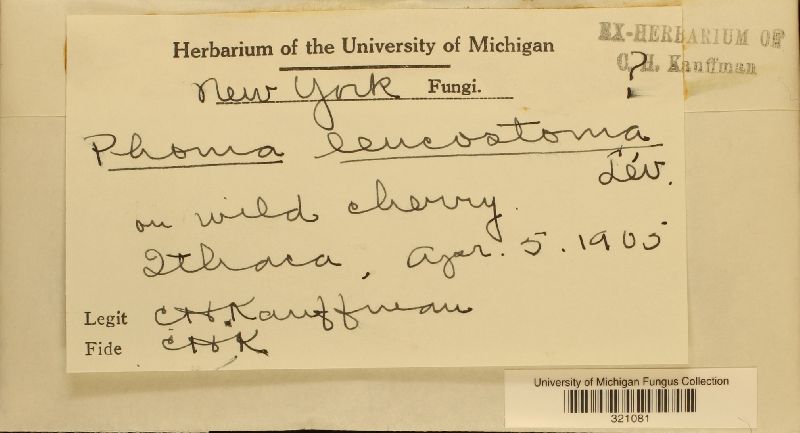 Herbarium of the University of Michigan
EX-HERBARIUM OF
C. H. Kauffman
New York Fungi.
?
Phoma leucostoma
Lév.
on wild cherry.
Ithaca, Apr. 5. 1905
Legit C H. Kauffman
Fide C H K.
University of Michigan Fungus Collection
321081